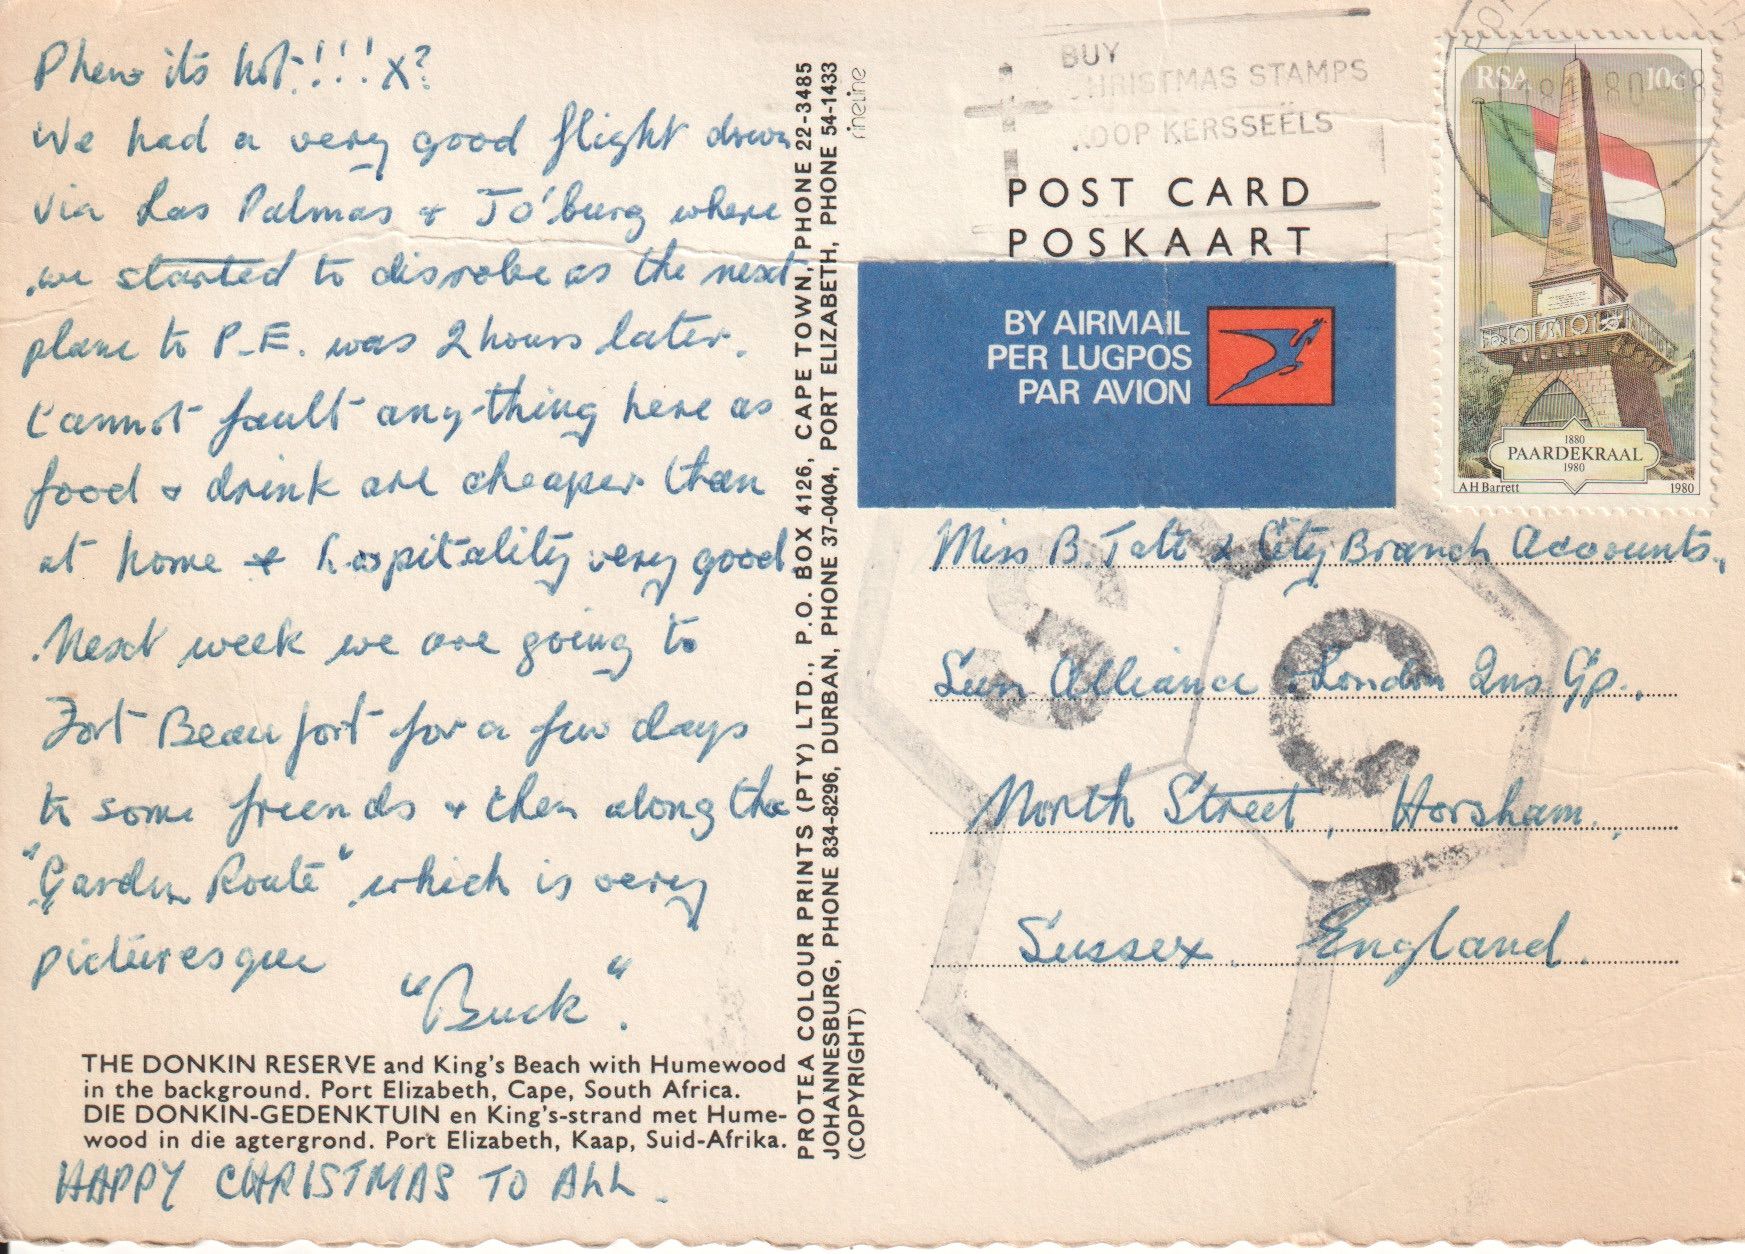 Phew its hot!!! x?
We had a very good flight down
via Las Palmas & Jo'burg where
we started to disrobe as the next
plane to P.E. was 2 hours later.
Cannot fault any-thing here as
food & drink are cheaper than
at home & hospitality very good
Next week we are going to
Fort Beaufort for a few days
to some friends & then along the
"Garden Route" which is very
picturesque
"Buck".
THE DONKIN RESERVE and King's Beach with Humewood
in the background. Port Elizabeth, Cape, South Africa.
DIE DONKIN-GEDENKTUIN en King's-strand met Hume-
wood in die agtergrond. Port Elizabeth, Kaap, Suid-Afrika.
HAPPY CHRISTMAS TO ALL.
PROTEA COLOUR PRINTS (PTY) LTD., P.O. BOX 4126, CAPE TOWN, PHONE 22-3485
JOHANNESBURG, PHONE 834-8296, DURBAN, PHONE 37-0404, PORT ELIZABETH, PHONE 54-1433
(COPYRIGHT)
BUY
CHRISTMAS STAMPS
KOOP KERSSEËLS
POST CARD
POSKAART
BY AIRMAIL
PER LUGPOS
PAR AVION
RSA 10c
1880
PAARDEKRAAL
1980
AH Barrett 1980
Miss B. Tait & City Branch Accounts,
Sun Alliance & London Ins Gp.,
North Street, Horsham,
Sussex. England.
S C